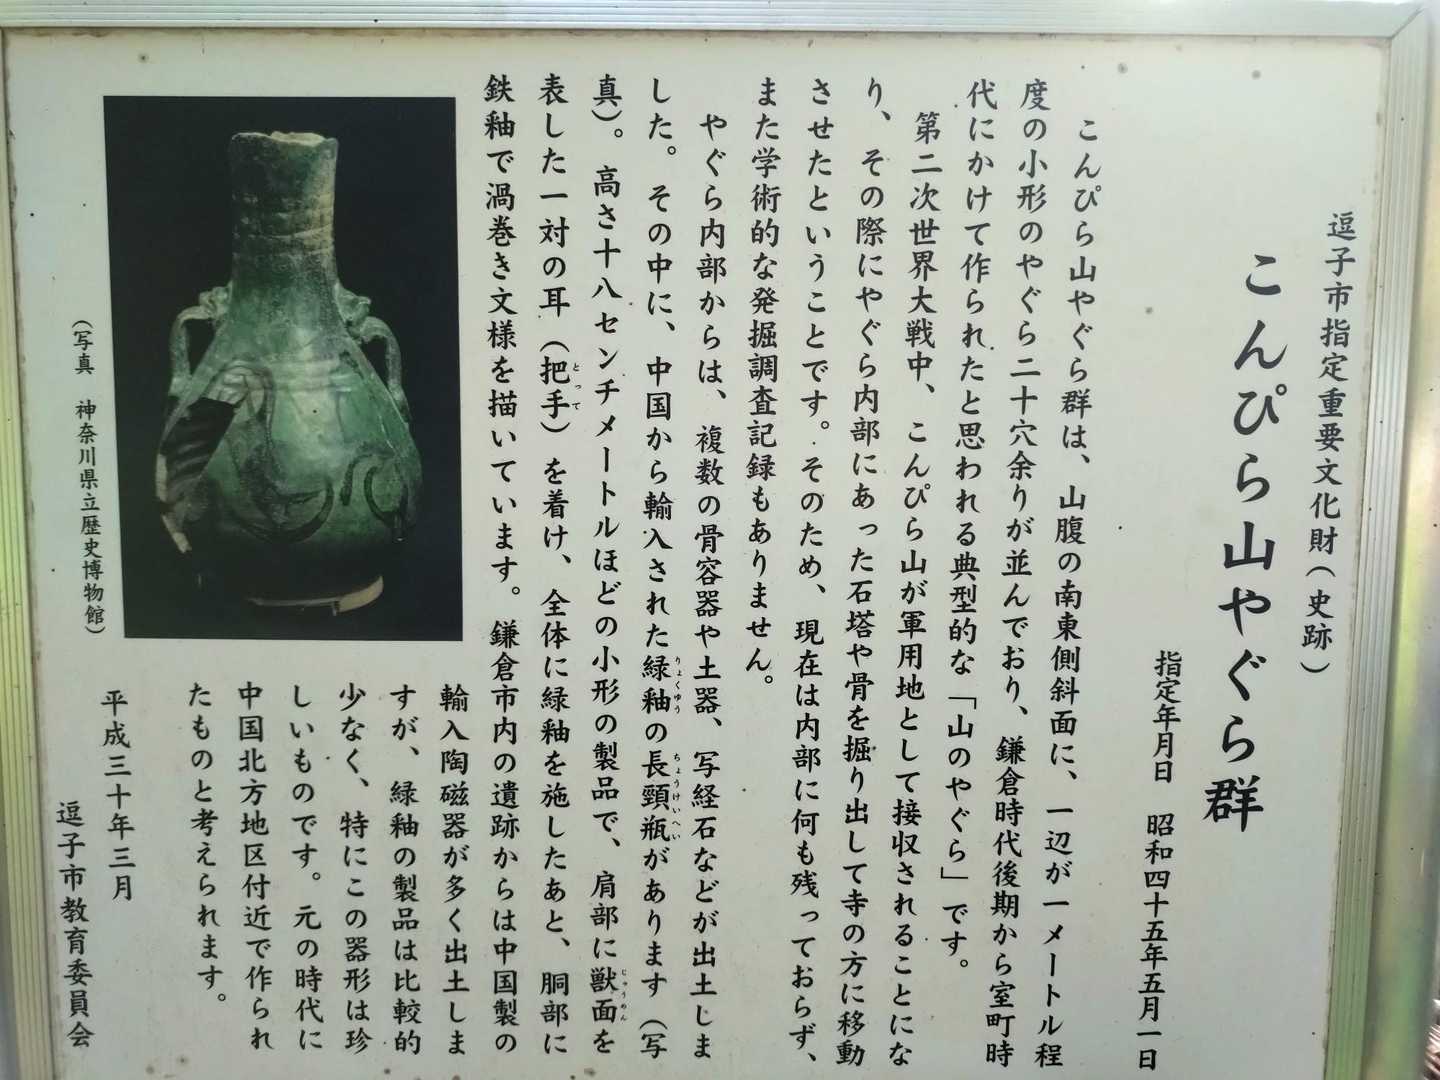 逗子市指定重要文化財（史跡）
こんぴら山やぐら群
指定年月日　昭和四十五年五月一日
こんぴら山やぐら群は、山腹の南東側斜面に、一辺が一メートル程
度の小形のやぐら二十穴余りが並んでおり、鎌倉時代後期から室町時
代にかけて作られたと思われる典型的な「山のやぐら」です。
第二次世界大戦中、こんぴら山が軍用地として接収されることにな
り、その際にやぐら内部にあった石塔や骨を掘り出して寺の方に移動
させたということです。そのため、現在は内部に何も残っておらず、
また学術的な発掘調査記録もありません。
やぐら内部からは、複数の骨容器や土器、写経石などが出土しま
した。その中に、中国から輸入された緑釉の長頸瓶があります（写
真）。高さ十八センチメートルほどの小形の製品で、肩部に獣面を
表した一対の耳（把手）を着け、全体に緑釉を施したあと、胴部に
鉄釉で渦巻き文様を描いています。鎌倉市内の遺跡からは中国製の
輸入陶磁器が多く出土しま
すが、緑釉の製品は比較的
少なく、特にこの器形は珍
しいものです。元の時代に
中国北方地区付近で作られ
たものと考えられます。
（写真　神奈川県立歴史博物館）
平成三十年三月
逗子市教育委員会